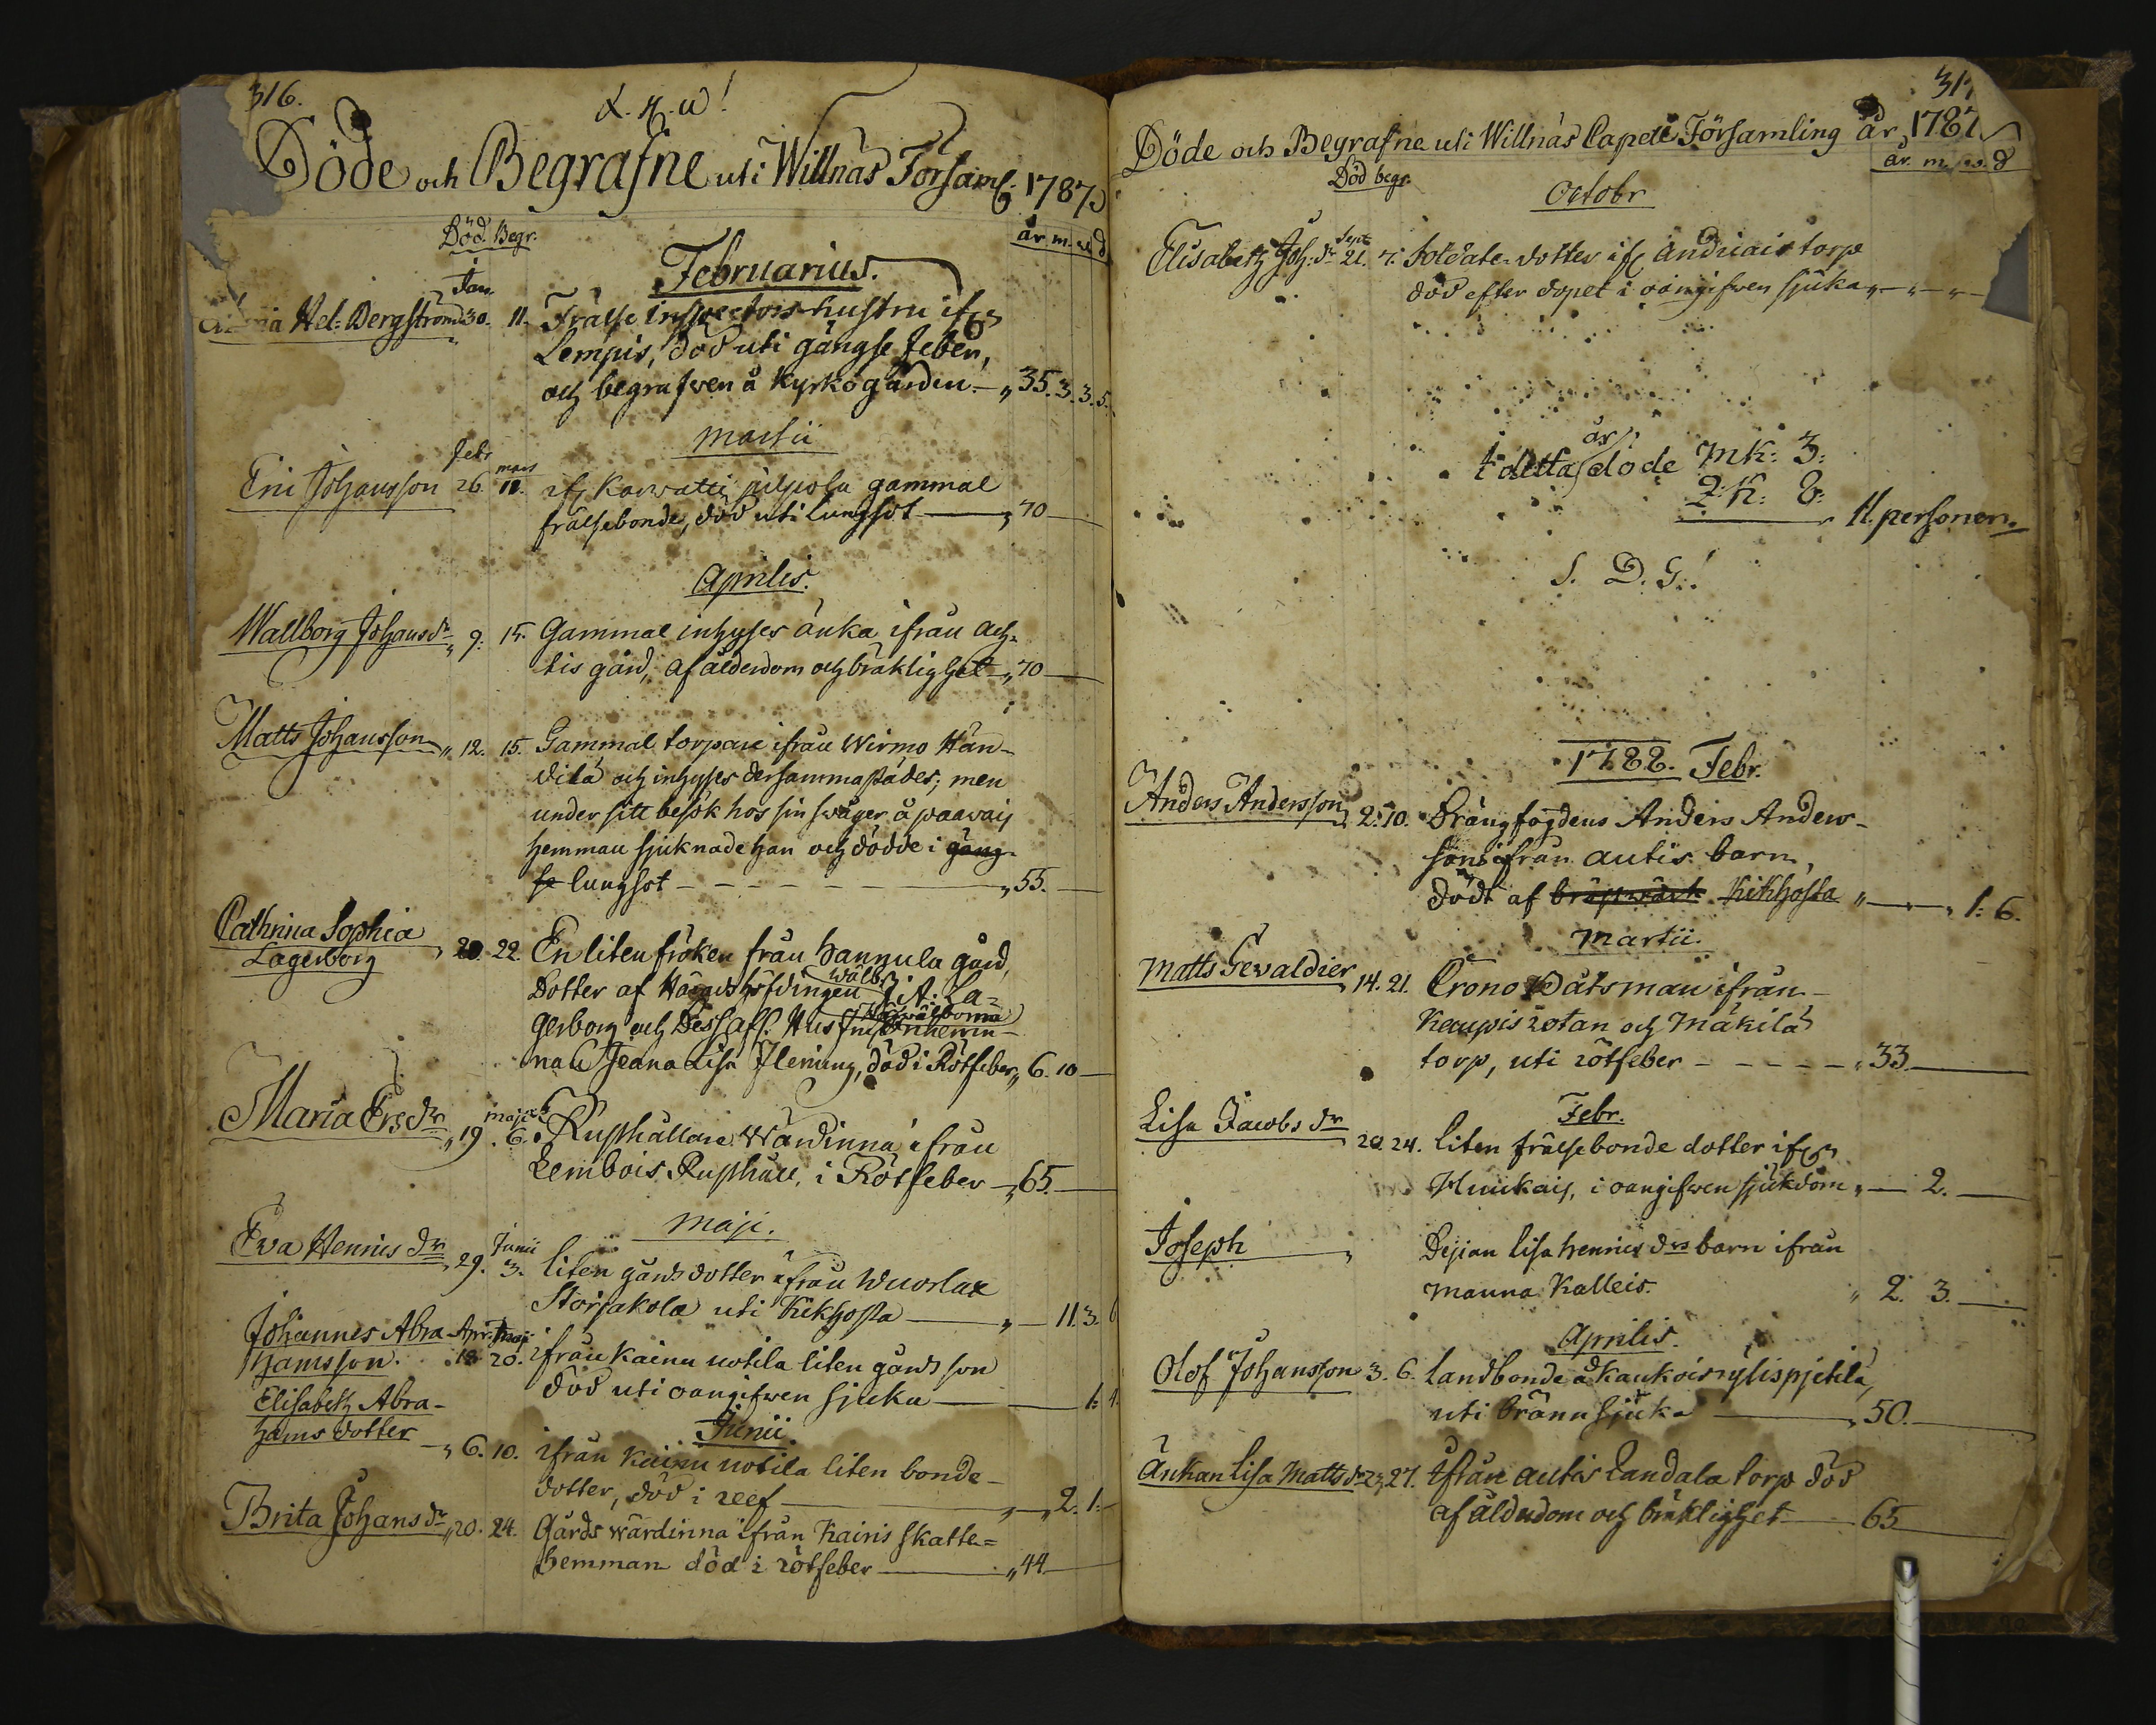 316.
Döde och Begrafne uti Willnäs Församl: 1787
Död. Begr.
år m. v. d
Februarius.
Jan.
Hel: Bergström 30. 11. Frälse inspectors hustru ifr:
Lempis, död uti gångse feber,
och begrafwen å kyrkogården. — „ 35. 3. 3. 5.
Martii
Febr mars
Eric Johansson 26. 18. gammal
frälsebonde, död uti lungsot — „ 70 —
Aprilis.
Wallborg Johansdr „ 9. 15. Gammal inhyses änka ifrån
tis gård, af ålderdom och bräklighet „ 70 —
Matts Johansson „ 12. 15. Gammal torpare ifrån Wirmo Hän-
dilä och inhyses dersammastädes; men
under sitt besök hos sin swåger å paawais
hemman sjuknade han och dödde i gång-
se lungsot — — — — — „ 55. —
Cathrina Sophia
Lagerborg „ 20. 22. En liten fröken från hannula gård,
wälb:
Dotter af Häradshöfdingen J: A: La-
gerborg och Dess afl. Hustru
na Jeana Lisa Fleming, död i Rötfeber „ 6. 10 —
maji
Maria Ersdr „ 19. 6. Rusthållare Wärdinna ifrån
Lembois Rusthåll, i Rötfeber — „ 65. —
Maji.
Junii
Eva Henricsdr „ 29. 3. liten gårds dotter ifrån Wuorlax
Storjakola uti Kikhosta — „ — 11. 3.
Johannes Abra- Apr. Maji
hamsson. 18 20. ifrån Kainu uotila liten gårds son
död uti oangifwen sjuka — 1.
Junii.
Elisabeth Abra-
hams dotter — „ 6. 10. ifrån Kainu uotila liten bonde-
dotter, död i reef — „ — „ 2. 1. —
Brita Johansdr „ 20. 24. Gårds wärdinna ifrån Kairis skatte-
hemman död i rötfeber — „ 44 —
317
Döde och Begrafne uti Willnäs Capell Församling år 1787
Död begr.
år. m. v. d
Octobr
Sept.
Elisabeth Joh:dr 21. 7. Soldate-dotter ifr: Andicais torp
död efter dopet i oangifwen sjuka „ — „ — „ —
år
I detta döde Mk: 3:
Q:k: 8:
11. personer.
S. D. G.!
1788. Febr.
Anders Andersson „ 2. 10. Drängfogdens Anders Anders-
sons ifrån Autis barn,
dödt af Kikhosta „ — „ — „ 1: 6.
Martii.
Matts Gevaldier 14. 21. Crono Båtsman ifrån
Kaupis rotan och Mäkilä
torp, uti rötfeber — — — — — „ 33 —
Febr.
Lisa Jacobsdr 20. 24. liten frälsebonde dotter ifr:
Huikais, i oangifwen sjukdom „ — 2. —
Joseph „ Dejian Lisa henricsdrs barn ifrån
Manna Kalleis. „ 2. 3. —
Aprilis.
Olof Johansson 3. 6. Landbonde å Kaukois
uti brännsjuka — „ 50. —
Änkan Lisa Mattsdr 23. 27. Ifrån Autis Landala torp död
af ålderdom och bräklighet — 65 —